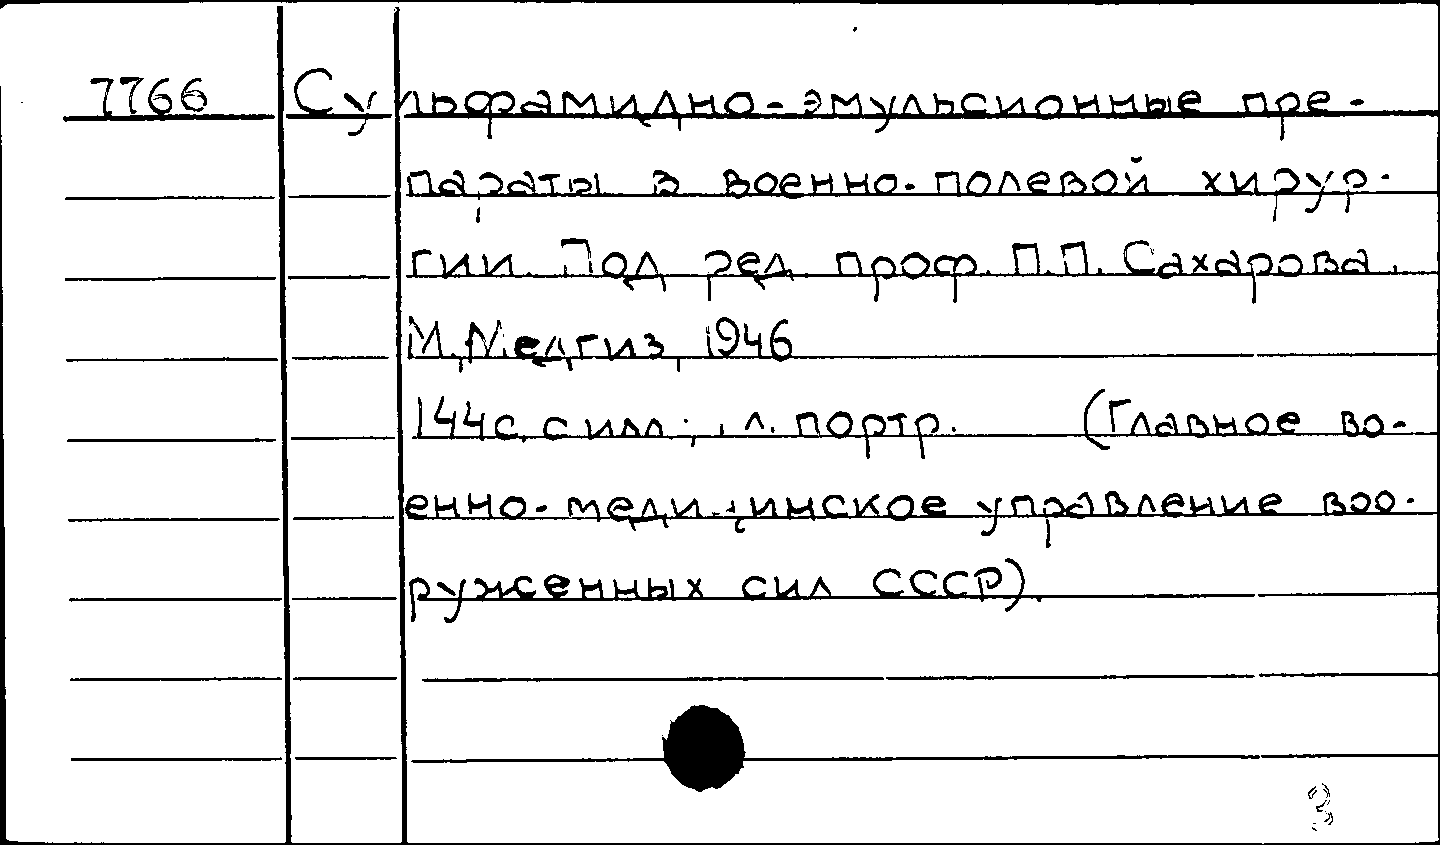 7766 Сульфамидно-эмульсионные пре-
параты в военно-полевой хирур-
гии. Под ред. проф. П.П. Сахарова.
М., Медгиз, 1946
144с. с илл.; л. портр. (Главное во-
енно-медицинское управление воо-
руженных сил СССР).
3